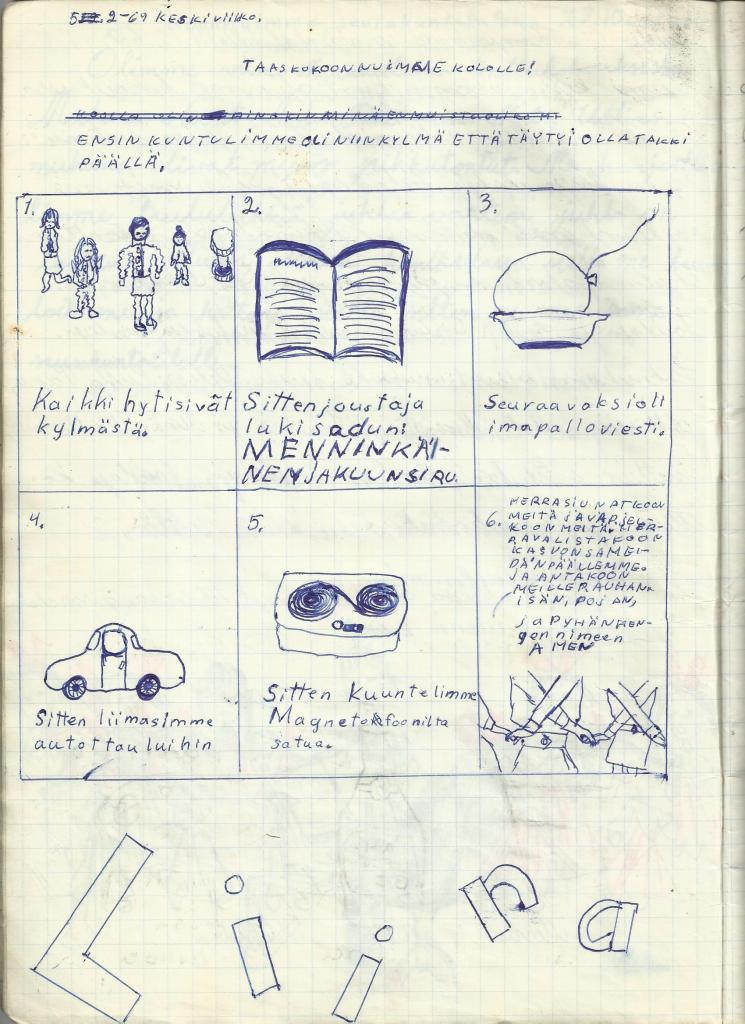 5. 2-69 KESKIVIIKKO.
TAAS KOKOONNUIMME KOLOLLE!
ENSIN KUN TULIMME OLI NIIN KYLMÄ ETTÄ TÄYTYI OLLA TAKKI
PÄÄLLÄ.
1.
Kaikki hytisivät
kylmästä.
2.
Sitten joustaja
luki sadun:
MENNINKÄI-
NEN JA KUUNSIRU.
3.
Seuraavaksi oli
ilmapalloviesti.
4.
Sitten liimasimme
autot tauluihin
5.
Sitten kuuntelimme
Magnetofoonilta
satua.
6.
HERRA SIUNATKOON
MEITÄ JA VARJEL-
KOON MEITÄ. HERRA
VALISTAKOON
KASVONSA MEI-
DÄN PÄÄLLEMME.
JA ANTAKOON
MEILLE RAUHAN.
ISÄN, POJAN,
JA PYHÄN HEN-
gen nimeen
AMEN
Liira